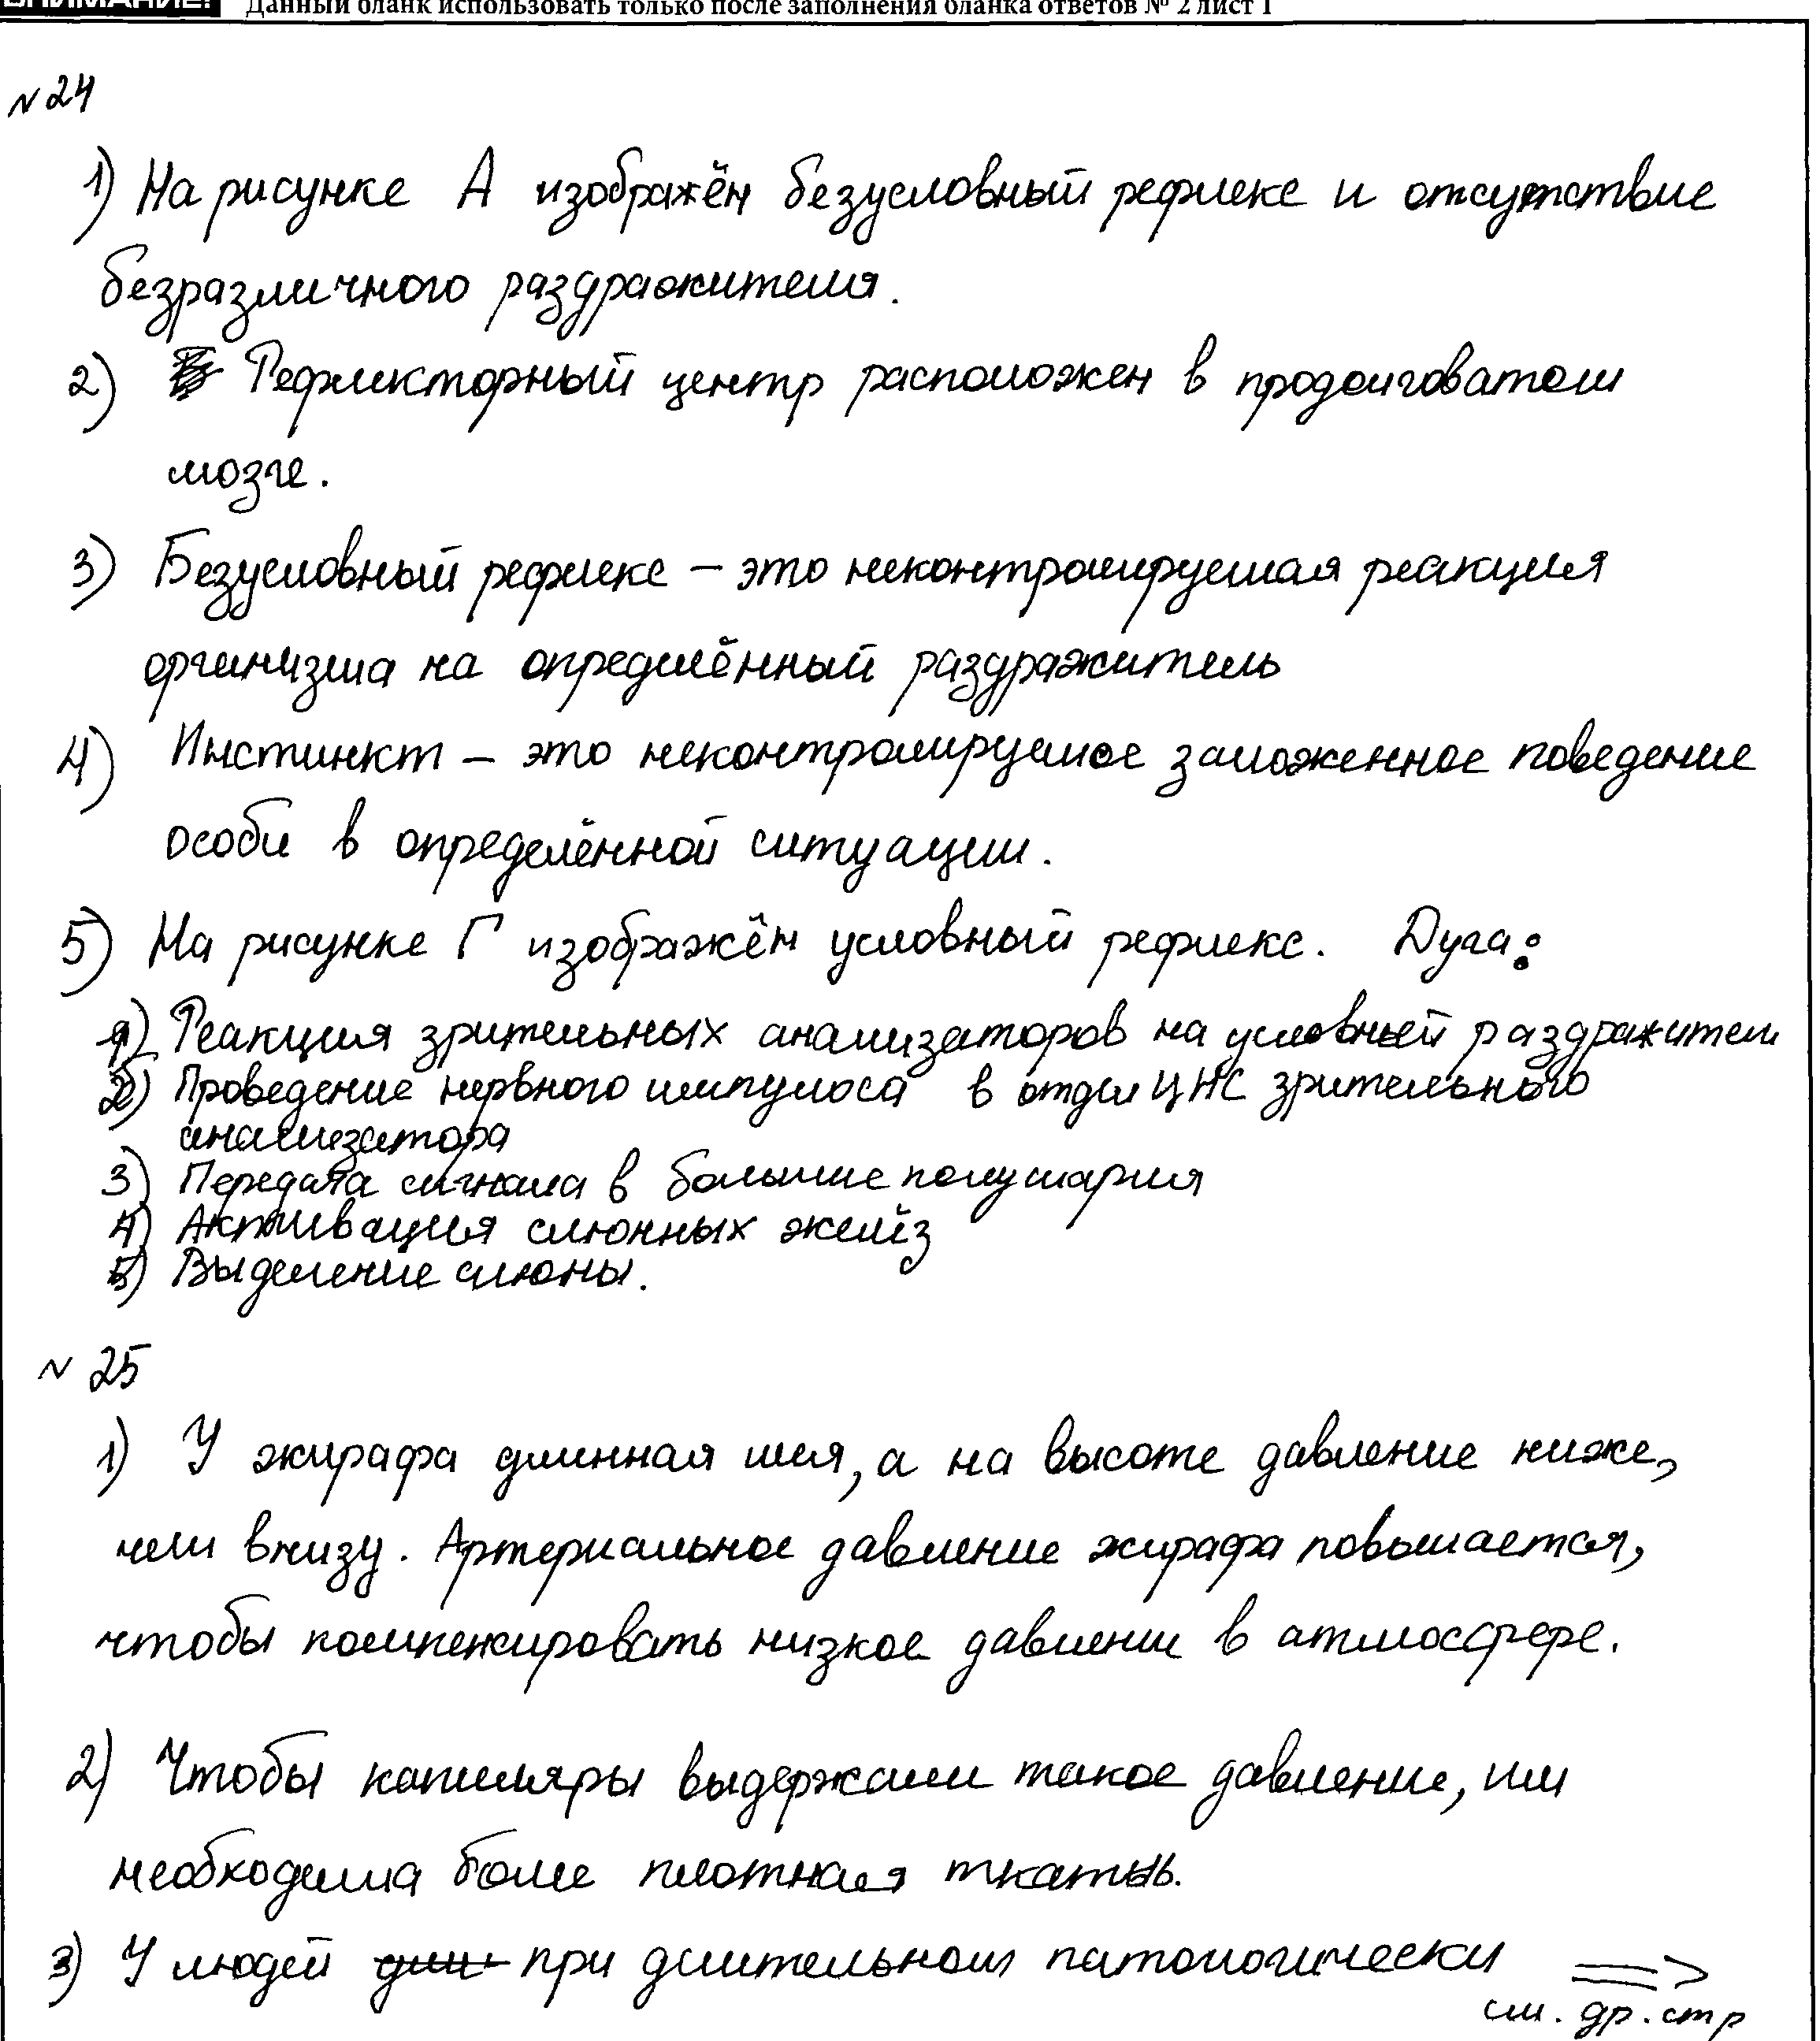 ВНИМАНИЕ! Данный бланк использовать только после заполнения бланка ответов № 2 лист 1
№ 24
1) На рисунке А изображён безусловный рефлекс и отсутствие
безразличного раздражителя.
2) Рефлекторный центр расположен в продолговатом
мозге.
3) Безусловный рефлекс – это неконтролируемая реакция
организма на определённый раздражитель
4) Инстинкт – это неконтролируемое заложенное поведение
особи в определённой ситуации.
5) На рисунке Г изображён условный рефлекс. Дуга:
1) Реакция зрительных анализаторов на условный раздражител
2) Проведение нервного импульса в отдел ЦНС зрительного
анализатора
3) Передача сигнала в большие полушария
4) Активация слюнных желёз
5) Выделение слюны.
№ 25
1) У жирафа длинная шея, а на высоте давление ниже,
чем внизу. Артериальное давление жирафа повышается,
чтобы компенсировать низкое давление в атмосфере.
2) Чтобы капилляры выдержали такое давление, им
необходима более плотная ткань.
3) У людей при длительном патологически
см. др. стр